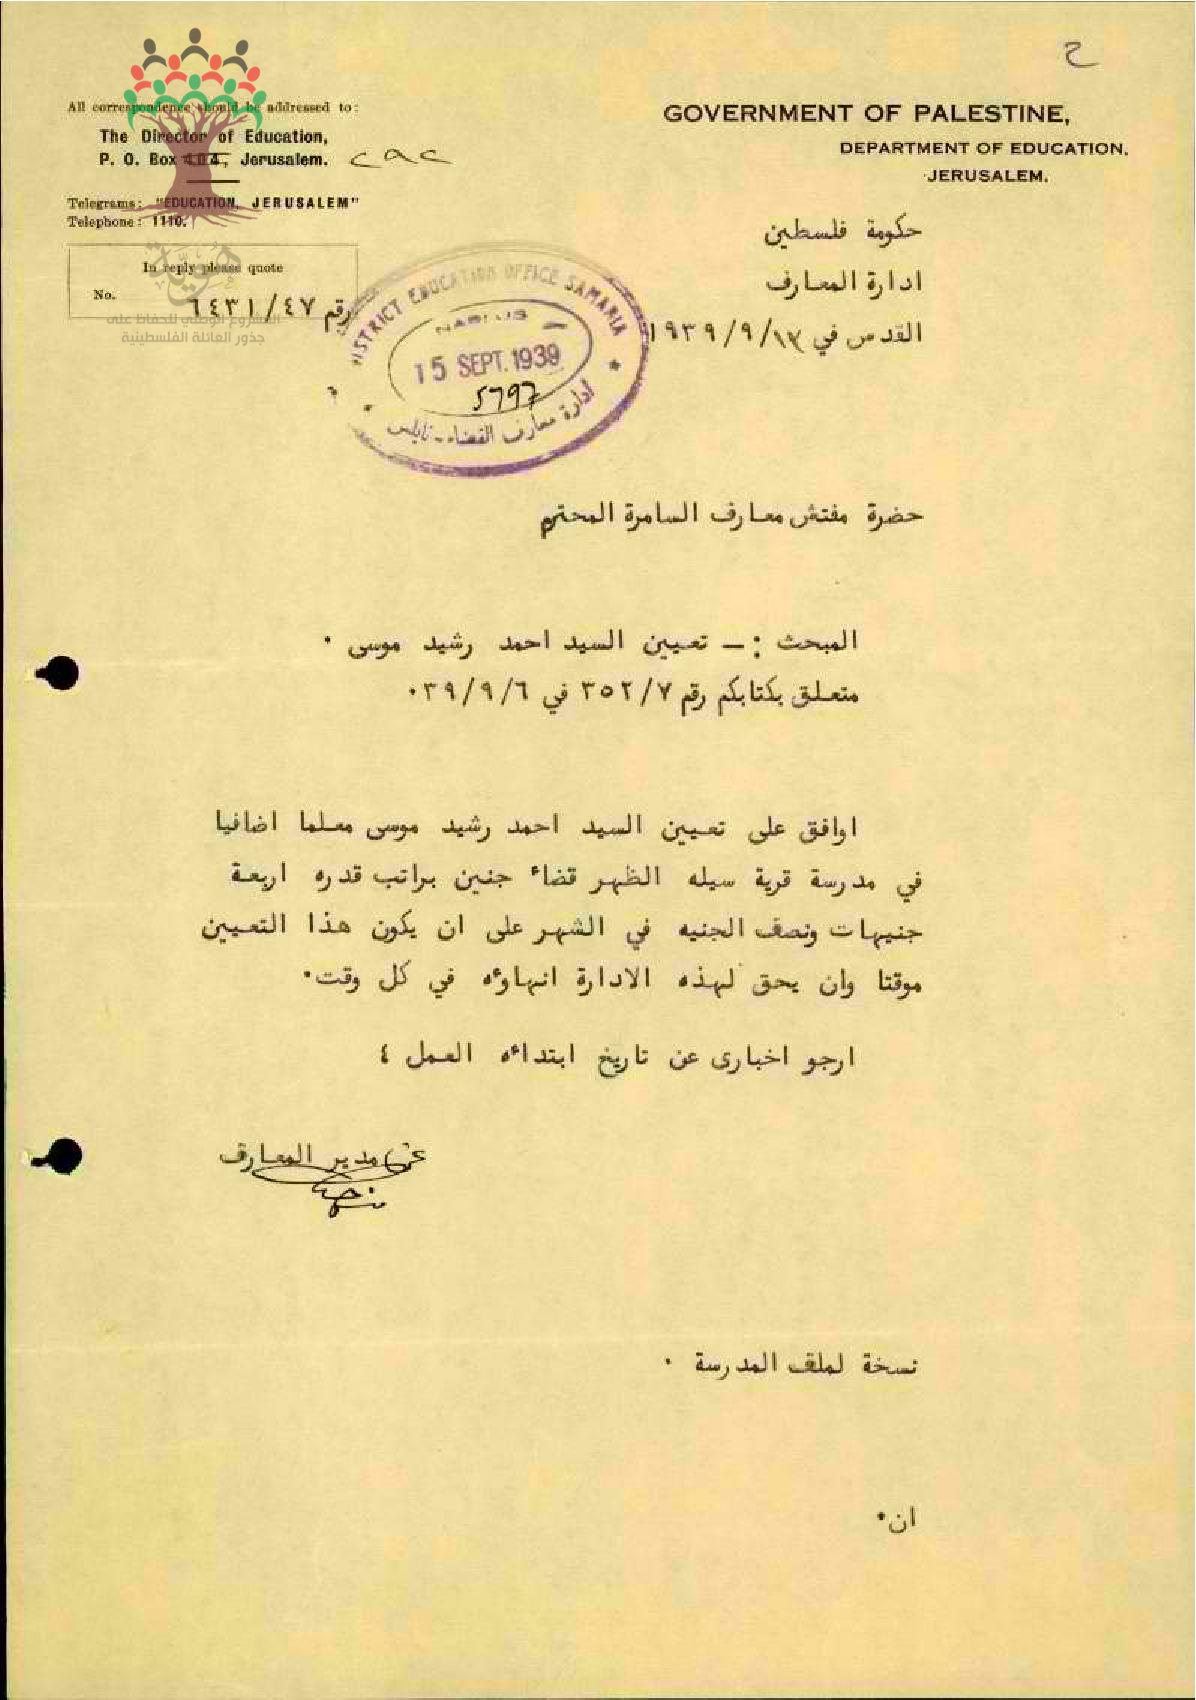 All correspondence should be addressed to:
The Director of Education,
P. O. Box 404, Jerusalem.
Telegrams: "EDUCATION, JERUSALEM"
Telephone: 1110.
In reply please quote
No.
رقم ٦٤٣١/٤٧
هوية
المشروع الوطني للحفاظ على
جذور العائلة الفلسطينية
GOVERNMENT OF PALESTINE,
DEPARTMENT OF EDUCATION,
JERUSALEM.
حكومة فلسطين
ادارة المعارف
القدس في ١٩٣٩/٩/١٣
DISTRICT EDUCATION OFFICE SAMARIA
NABLUS
15 SEPT. 1939
5797
ادارة معارف القضاء - نابلس
حضرة مفتش معارف السامرة المحترم
المبحث :- تعيين السيد احمد رشيد موسى .
متعلق بكتابكم رقم ٣٥٢/٧ في ٠٣٩/٩/٦
اوافق على تعيين السيد احمد رشيد موسى معلما اضافيا
في مدرسة قرية سيله الظهر قضاء جنين براتب قدره اربعة
جنيهات ونصف الجنيه في الشهر على ان يكون هذا التعيين
موقتا وان يحق لهذه الادارة انهاوءه في كل وقت.
ارجو اخبارى عن تاريخ ابتداءه العمل ٤
عن مدير المعارف
نسخة لملف المدرسة .
ان.